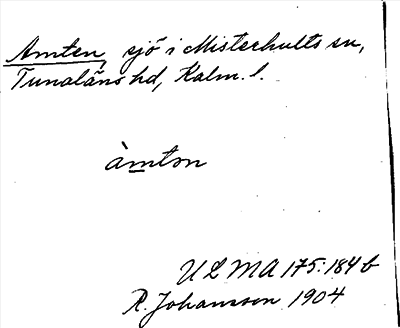 Amten, sjö i Misterhults sn,
Tunaläns hd, Kalm. l.
àmton
ULMA 175:184 b
R. Johansson 1904